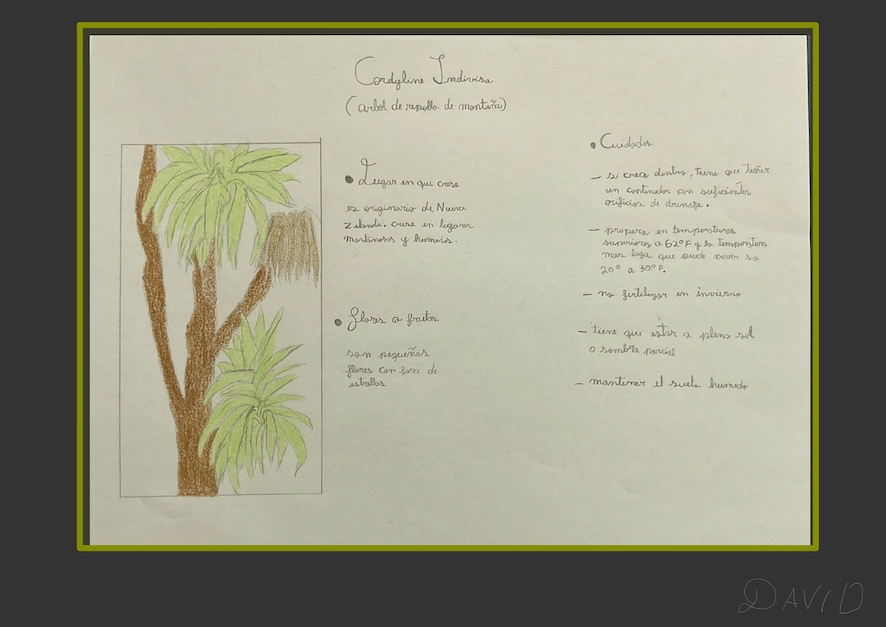 Cordyline Indivisa
(arbol de repollo de montaña)
• Lugar en que crese
es originario de Nueva
Zelanda. crese en lugares
montañosos y humedos.
• flores o frutos
son pequeñas
flores con fora de
estrellas
• Cuidados
– si crece dentro, tiene que tener
un contenedor con suficientes
orificios de drenaje.
– propera en temperaturas
superiores a 62°F y la temperatura
mas baja que puede vivir sa
20° a 30°F.
– no fertilizar en invierno
– tiene que estar a plena sol
o sombra parcial
– mantener el suelo humedo
DAVID